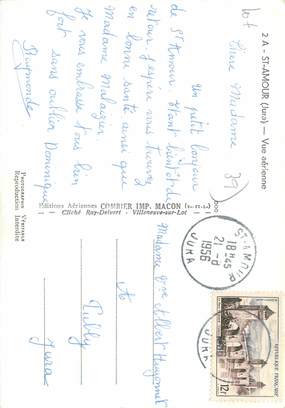 2 A - ST-AMOUR (Jura) — Vue aérienne
Chère Madame
Un petit bonjour
de St Amour. Étant bientôt de
retour, j'espère vous trouver
en bonne santé ainsi que
Madame
Je vous embrasse tous bien
fort sans oublier Dominique
Raymonde
Editions Aériennes COMBIER IMP. MACON
Cliché Ray-Delvert - Villeneuve-sur-Lot
Photographie Véritable
Reproduction Interdite
39
ST-AMOUR
18H45
21-8
1956
JURA
JURA
Madame Vve Albert
A
Jura
REPUBLIQUE FRANÇAISE
12F